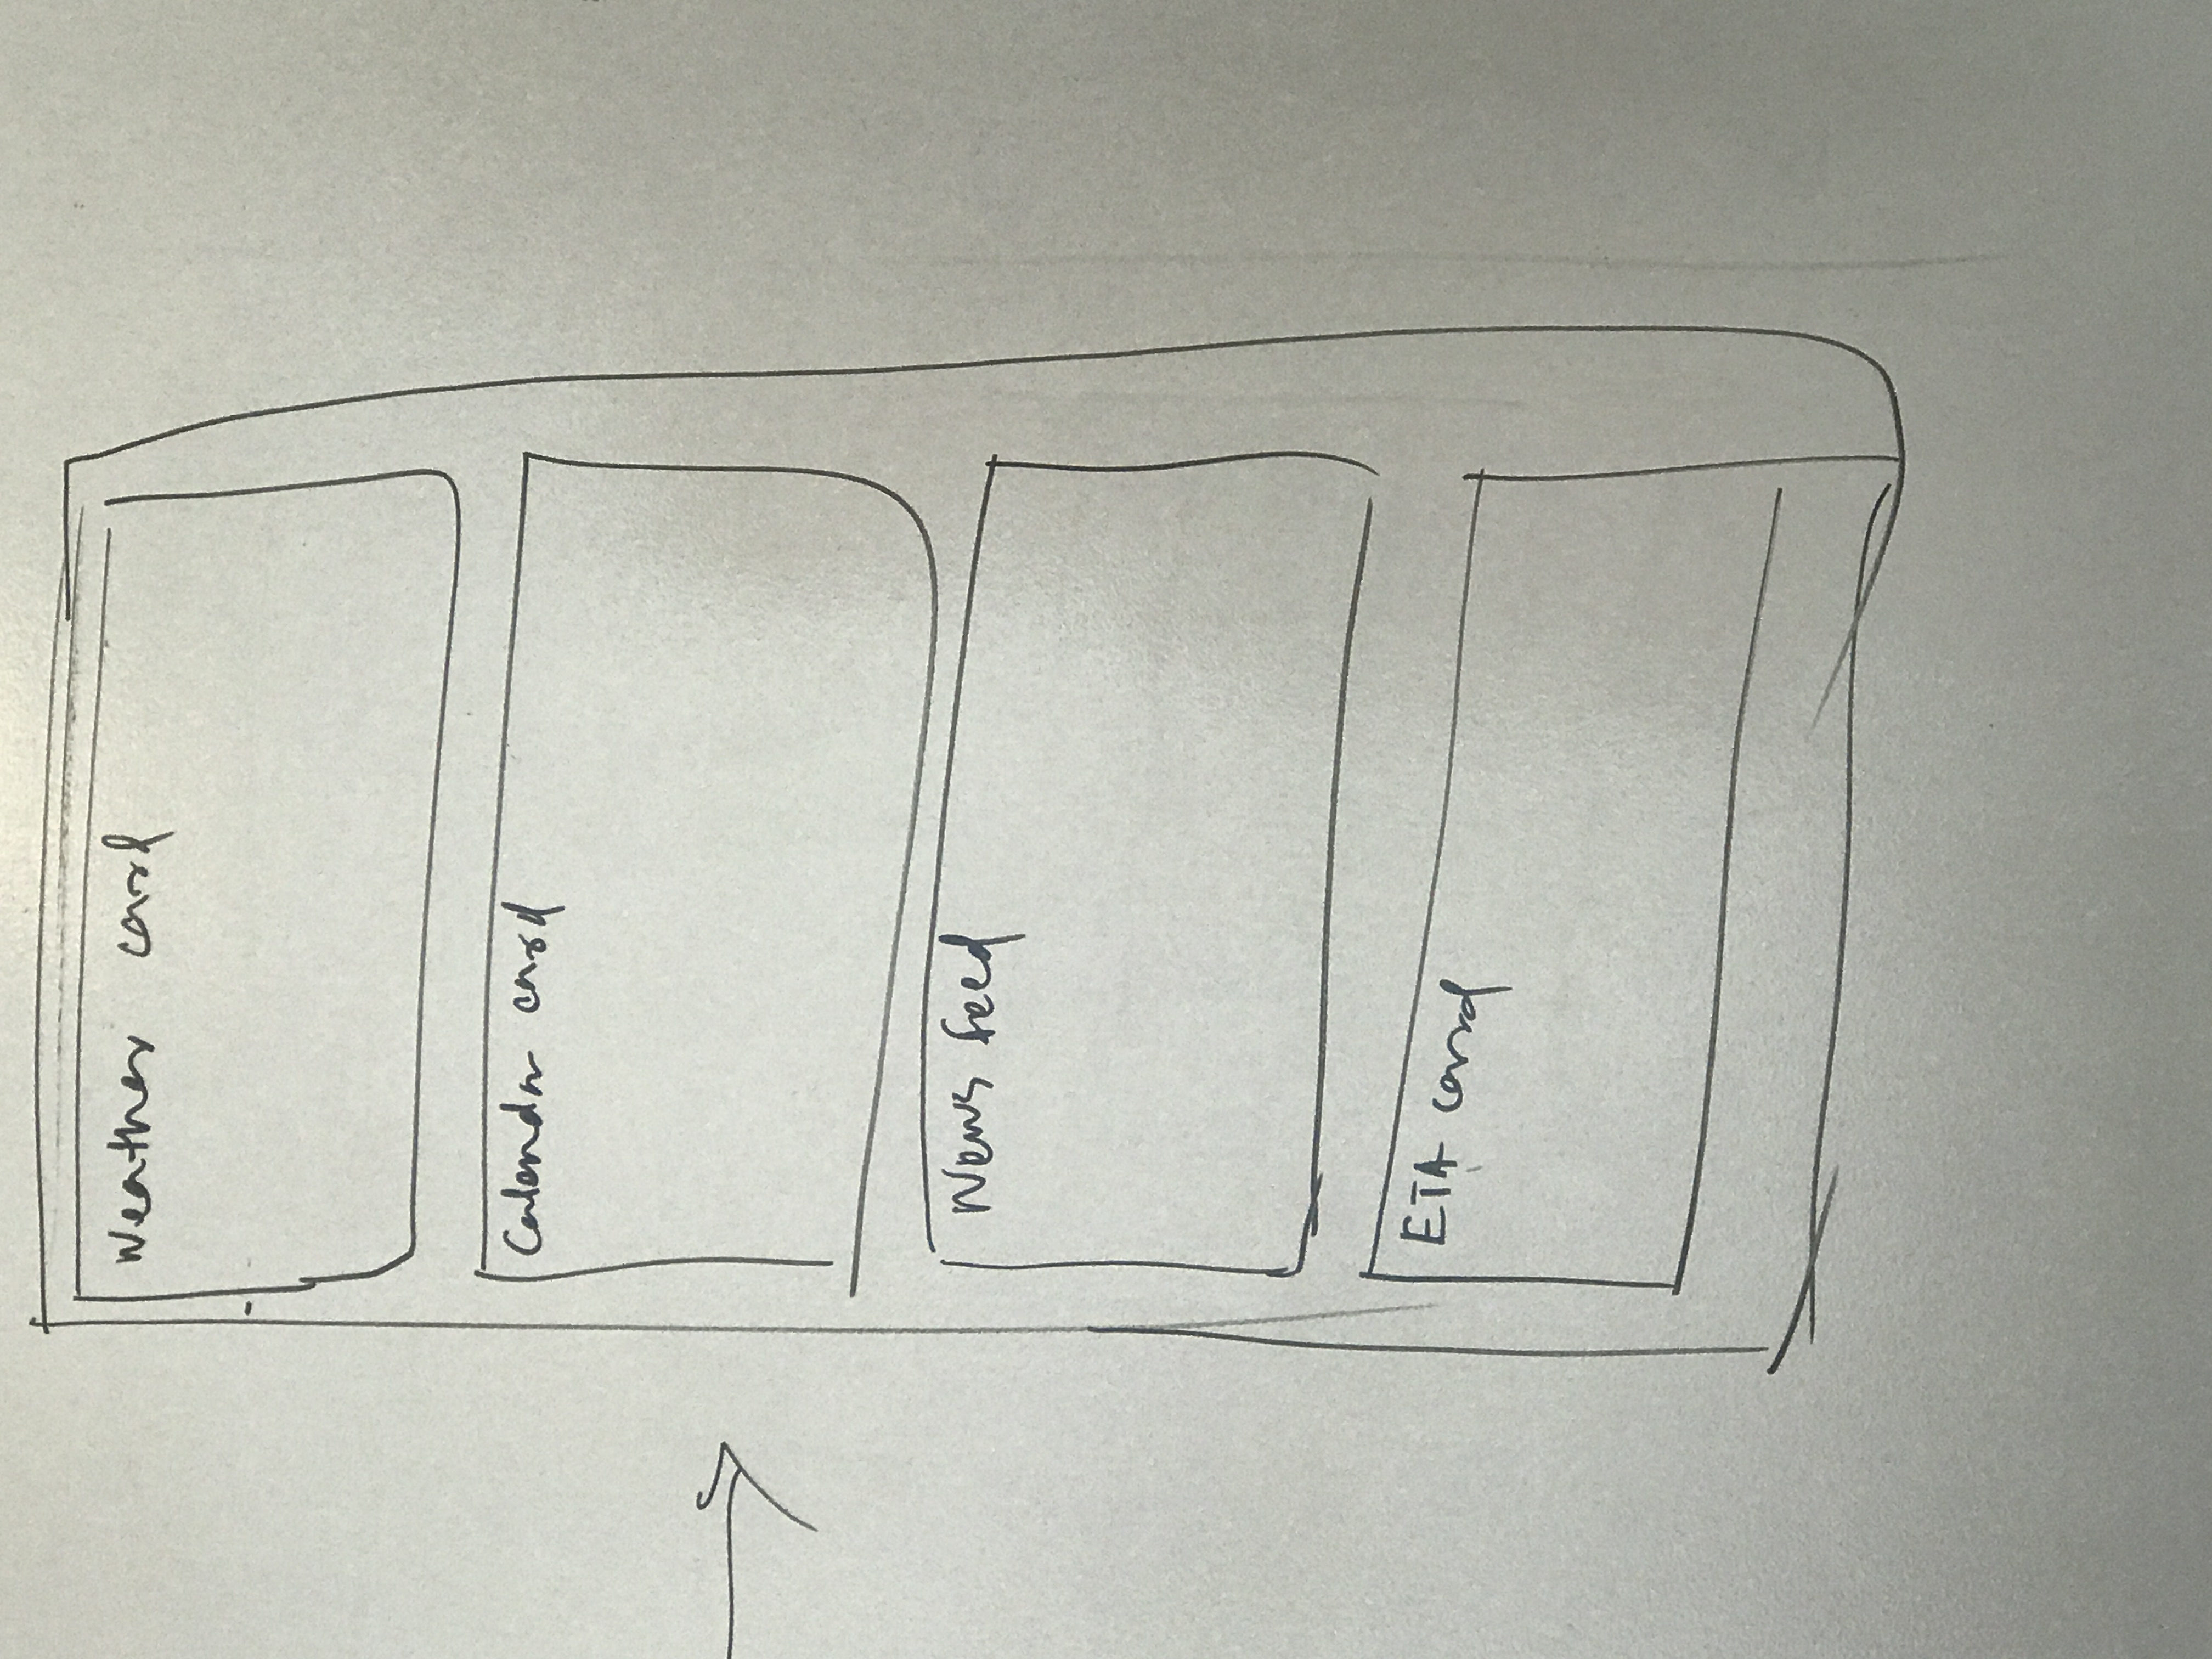 Weather card
Calendar card
News feed
ETA card